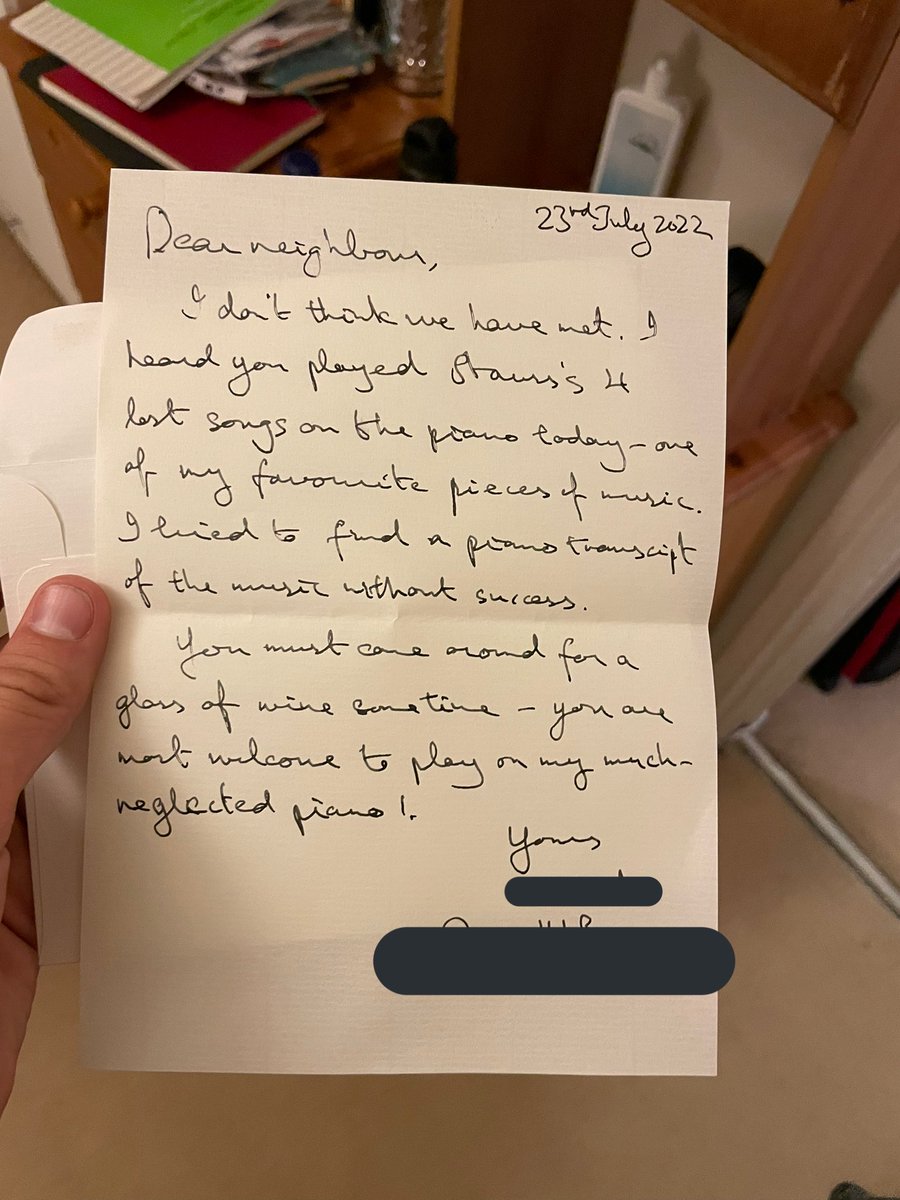 23rd July 2022
Dear neighbour,
I don't think we have met. I
heard you played Strauss's 4
last songs on the piano today - one
of my favourite pieces of music.
I tried to find a piano transcript
of the music without success.
You must come around for a
glass of wine sometime - you are
most welcome to play on my much-
neglected piano!
Yours